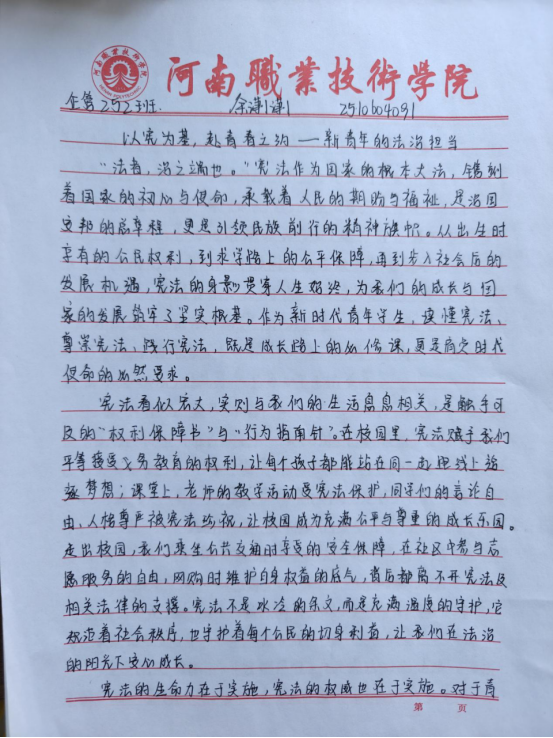 河南职业技术学院
河南職業技術學院
企管252班. 余謙謙 2510604091
以宪为基,赴青春之约——新青年的法治担当
“法者,治之端也。”宪法作为国家的根本大法,镌刻
着国家的初心与使命,承载着人民的期盼与福祉,是治国
安邦的总章程,更是引领民族前行的精神旗帜。从出生时
享有的公民权利,到求学路上的公平保障,再到步入社会后的
发展机遇,宪法的身影贯穿人生始终,为我们的成长与国
家的发展筑牢了坚实根基。作为新时代青年学生,读懂宪法、
尊崇宪法、践行宪法,既是成长路上的必修课,更是肩负时代
使命的必然要求。
宪法看似宏大,实则与我们的生活息息相关,是触手可
及的“权利保障书”与“行为指南针”。在校园里,宪法赋予我们
平等接受义务教育的权利,让每个孩子都能站在同一起跑线上追
逐梦想;课堂上,老师的教学活动受宪法保护,同学们的言论自
由、人格尊严被宪法珍视,让校园成为充满公平与尊重的成长乐园。
走出校园,我们乘坐公共交通时享受的安全保障,在社区中参与志
愿服务的自由,网购时维护自身权益的底气,背后都离不开宪法及
相关法律的支撑。宪法不是冰冷的条文,而是充满温度的守护,它
规范着社会秩序,也守护着每个公民的切身利益,让我们在法治
的阳光下安心成长。
宪法的生命力在于实施,宪法的权威也在于实施。对于青
第 页